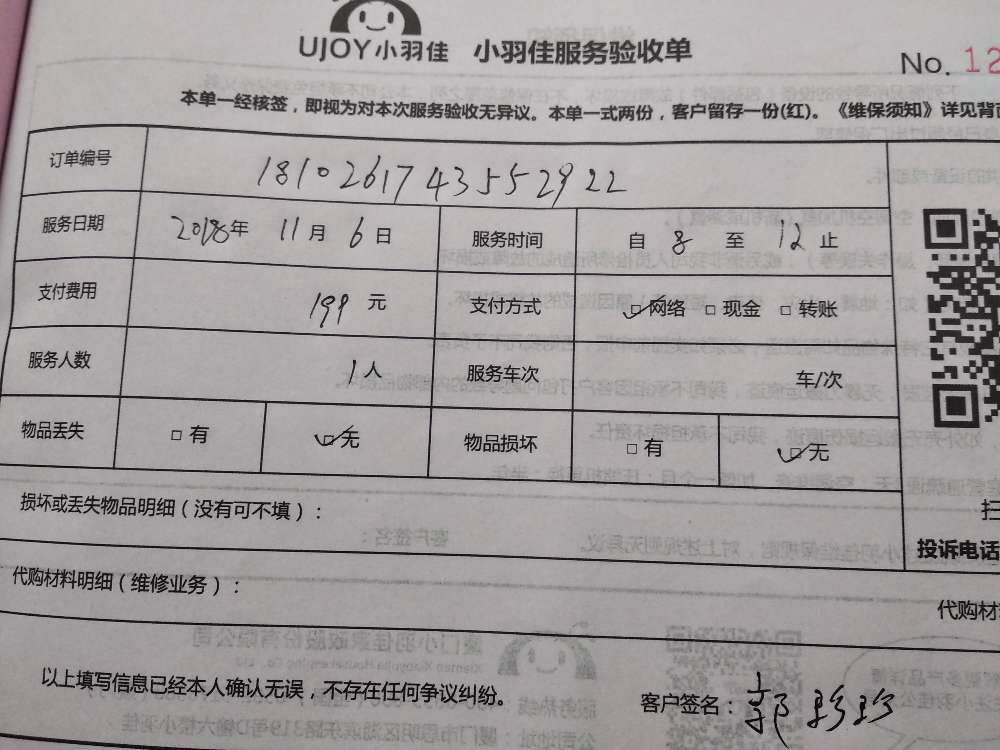 UJOY小羽佳 小羽佳服务验收单
No. 12
本单一经核签，即视为对本次服务验收无异议。本单一式两份，客户留存一份(红)。《维保须知》详见背面
订单编号 1810261743552922
服务日期 2018年 11月 6日 服务时间 自 8 至 12 止
支付费用 199 元 支付方式 ☑网络 □现金 □转账
服务人数 1人 服务车次 车/次
物品丢失 □有 ☑无 物品损坏 □有 ☑无
损坏或丢失物品明细（没有可不填）：
扫
投诉电话
代购材料明细（维修业务）：
代购材
以上填写信息已经本人确认无误，不存在任何争议纠纷。 客户签名：郭珍珍